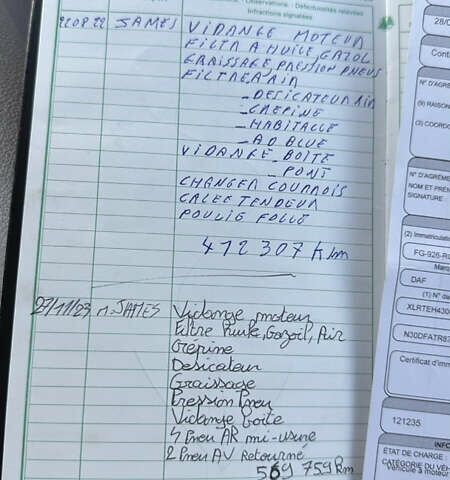 Observations : Défectuosités relevées
Infractions signalées
22 08 22 JAMES VIDANGE MOTEUR
FILTR A HUILE, GAZOL
GRAISSAGE, PRESSION PNEUS
FILTRER AIR
_ DESICATEUR AIR
_ CREPINE
_ HABITACLE
_ AD BLUE
VIDANGE _ BOITE
_ PONT
CHANGER COURROIS
GALEE TENDEUR
POULIE FOLLE
412 307 k km
27/11/23 n. JAMES Vidange moteur
Filtre Huile, Gazoil, Air
Crépine
Desicateur
Graissage
Pression Pneu
Vidange boite
4 Pneu AR mi-usure
2 Pneu AV Retourné
569 759 Km
28/0
Cont
N° D'AGRÉ
(9) RAISON
(3) COORDO
N° D'AGRÉME
NOM ET PRÉN
SIGNATURE
(2) Immatriculatio
FG-926-R
Marq
DAF
(1) N° de
XLRTEH430
N30DFATR83
Certificat d'imm
121235
INFO
ÉTAT DE CHARGE :
CATÉGORIE DU VÉH
Véhicule à moteur